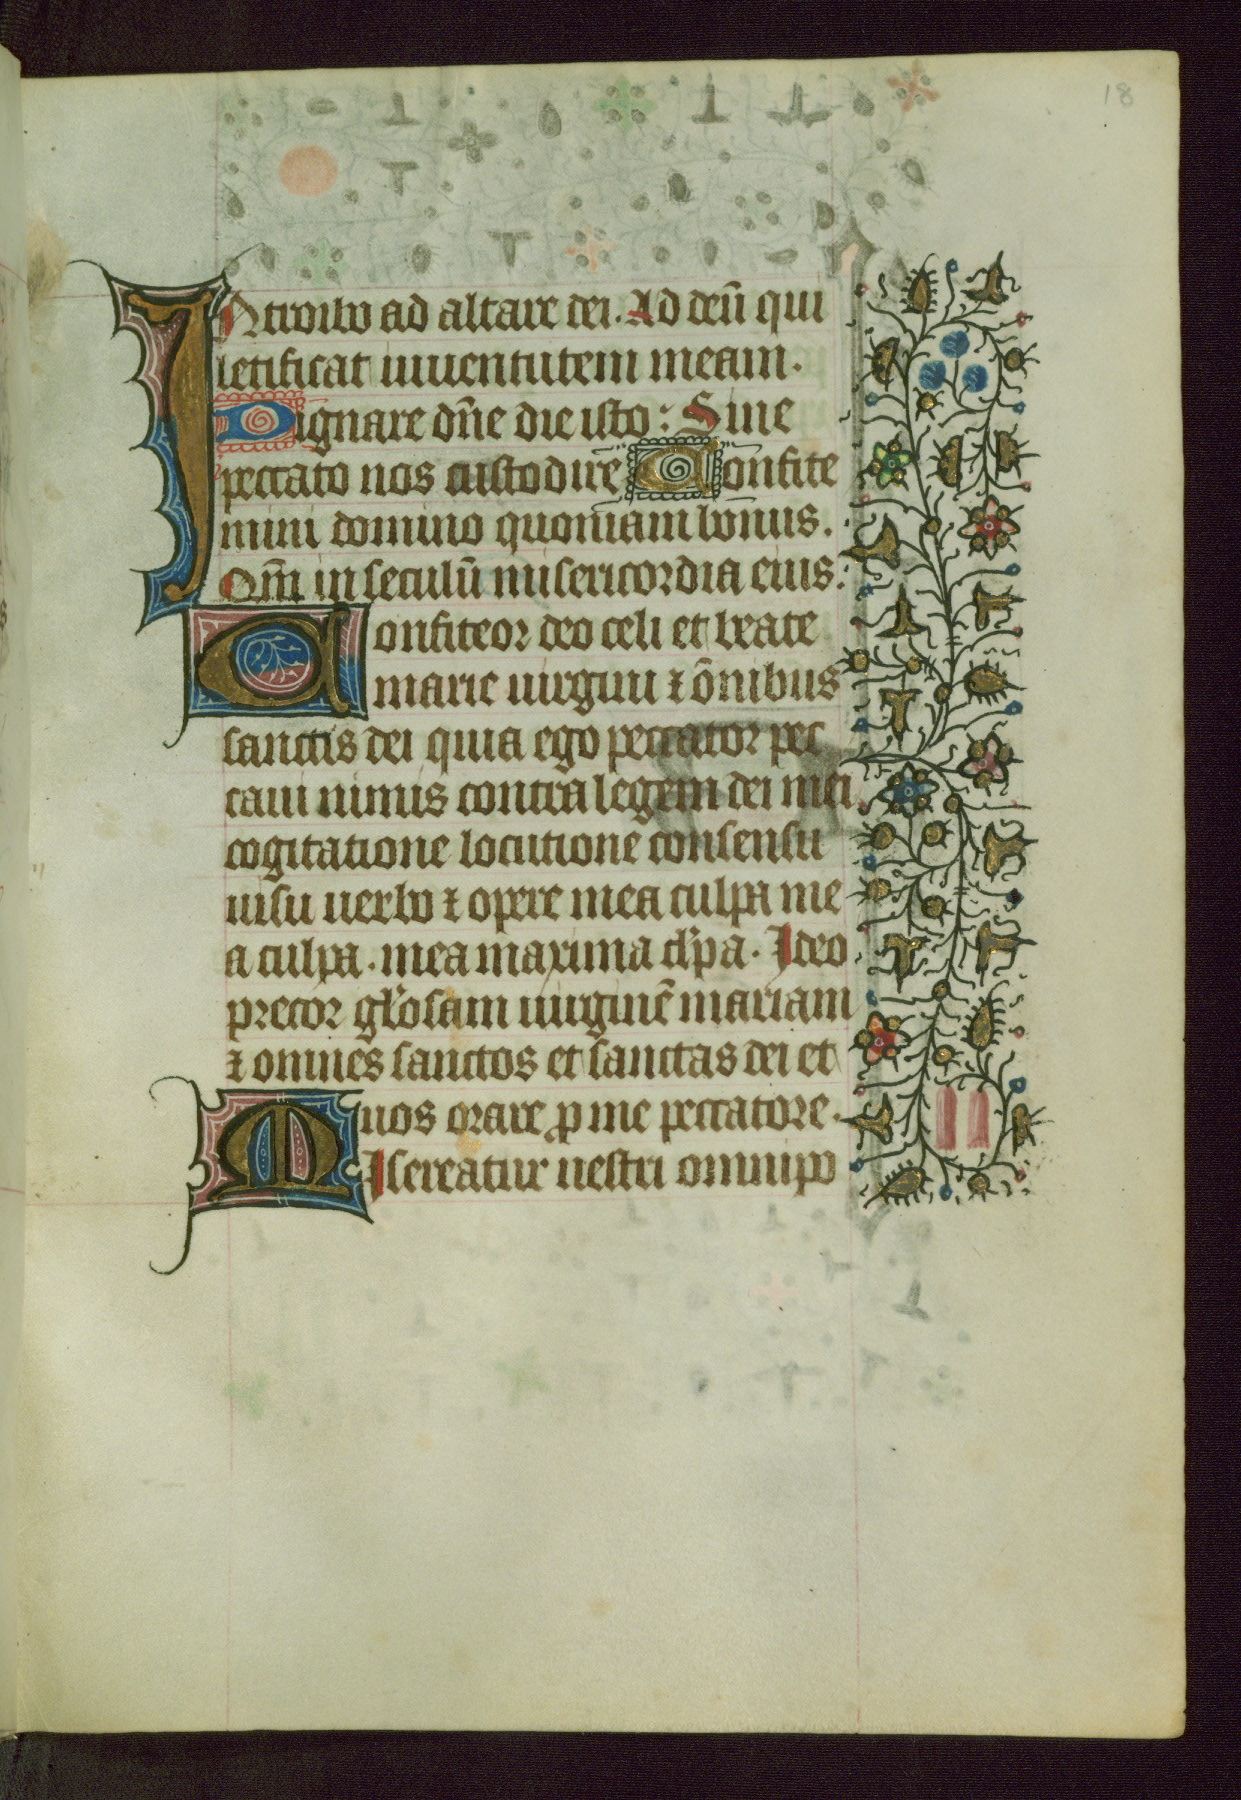 18
INtroibo ad altare dei. Ad deū qui
letificat iuuentutem meam.
Dignare dn̄e die isto: Sine
peccato nos custodire Confite
mini domino quoniam bonus.
Qm̄ in seculū misericordia eius:
Confiteor deo celi et beate
marie uirgini ⁊ ōnibus
sanctis dei quia ego peccator pec
caui nimis contra legem dei mei
cogitatione locutione consensu
uisu uerbo ⁊ opere mea culpa me
a culpa. mea maxima cl̓pa. Ideo
precor gl̓osam uirginē mariam
⁊ omnes sanctos et sanctas dei et
uos orare ꝓ me peccatore.
MIsereatur uestri omnipo